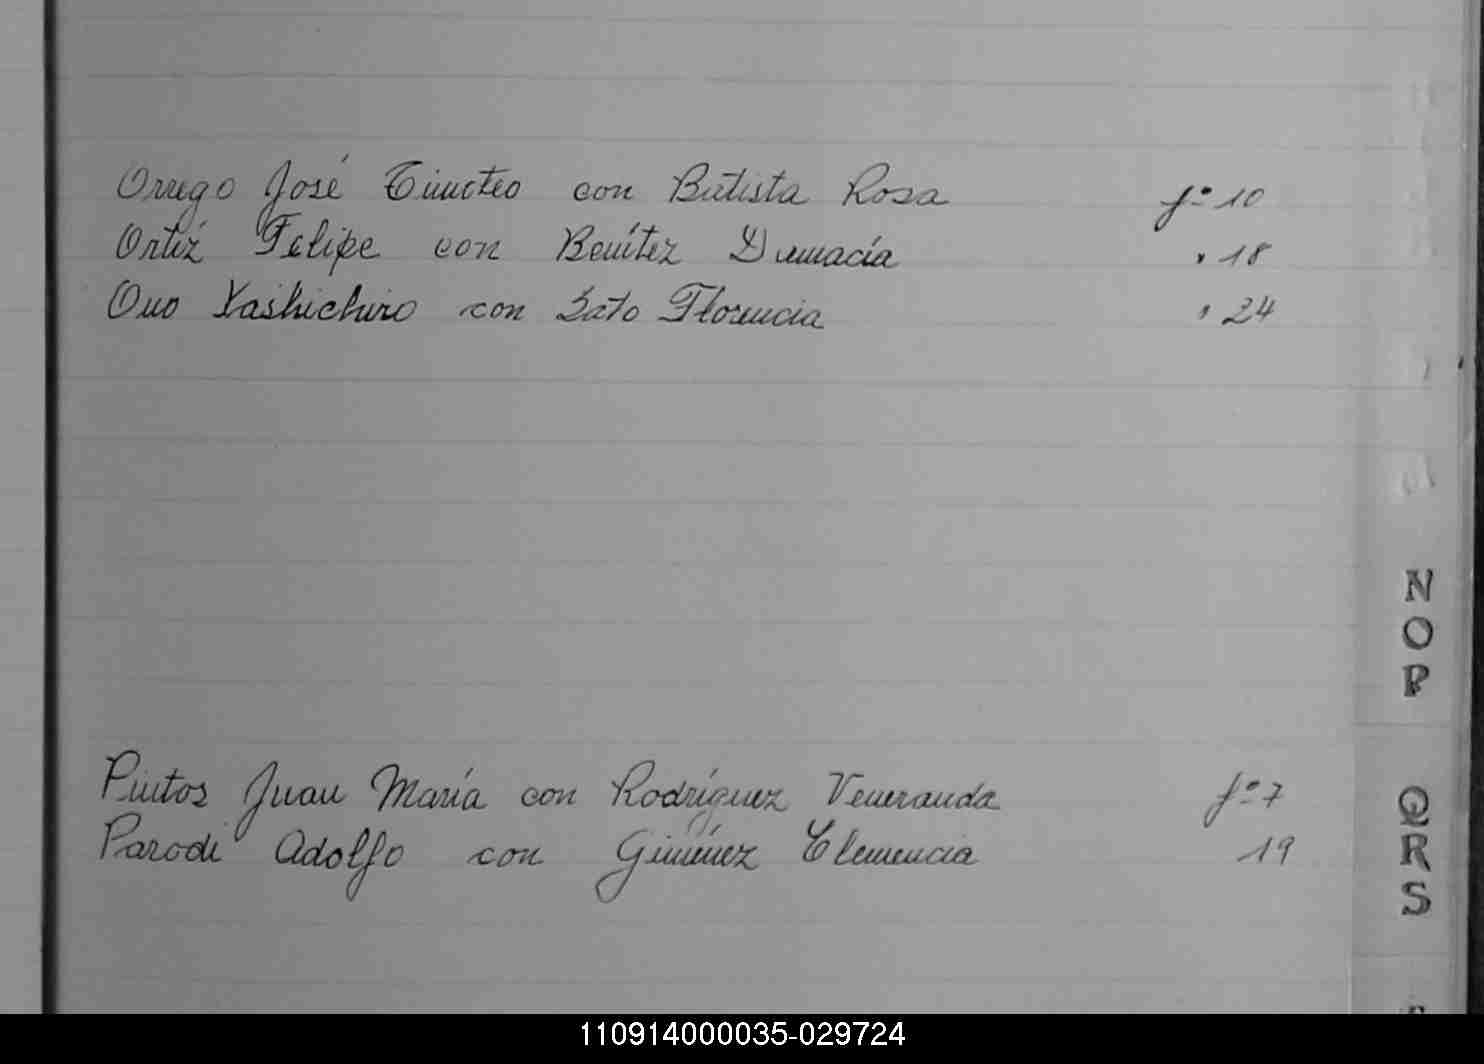 Orrego José Timoteo con Batista Rosa fº 10
Ortíz Felipe con Benítez Damacía " 18
Ono Yashichiro con Sato Florencia " 24
N
O
P
Pintos Juan María con Rodríguez Veneranda fº 7
Parodi Adolfo con Giménez Clemencia 19
Q
R
S
110914000035-029724